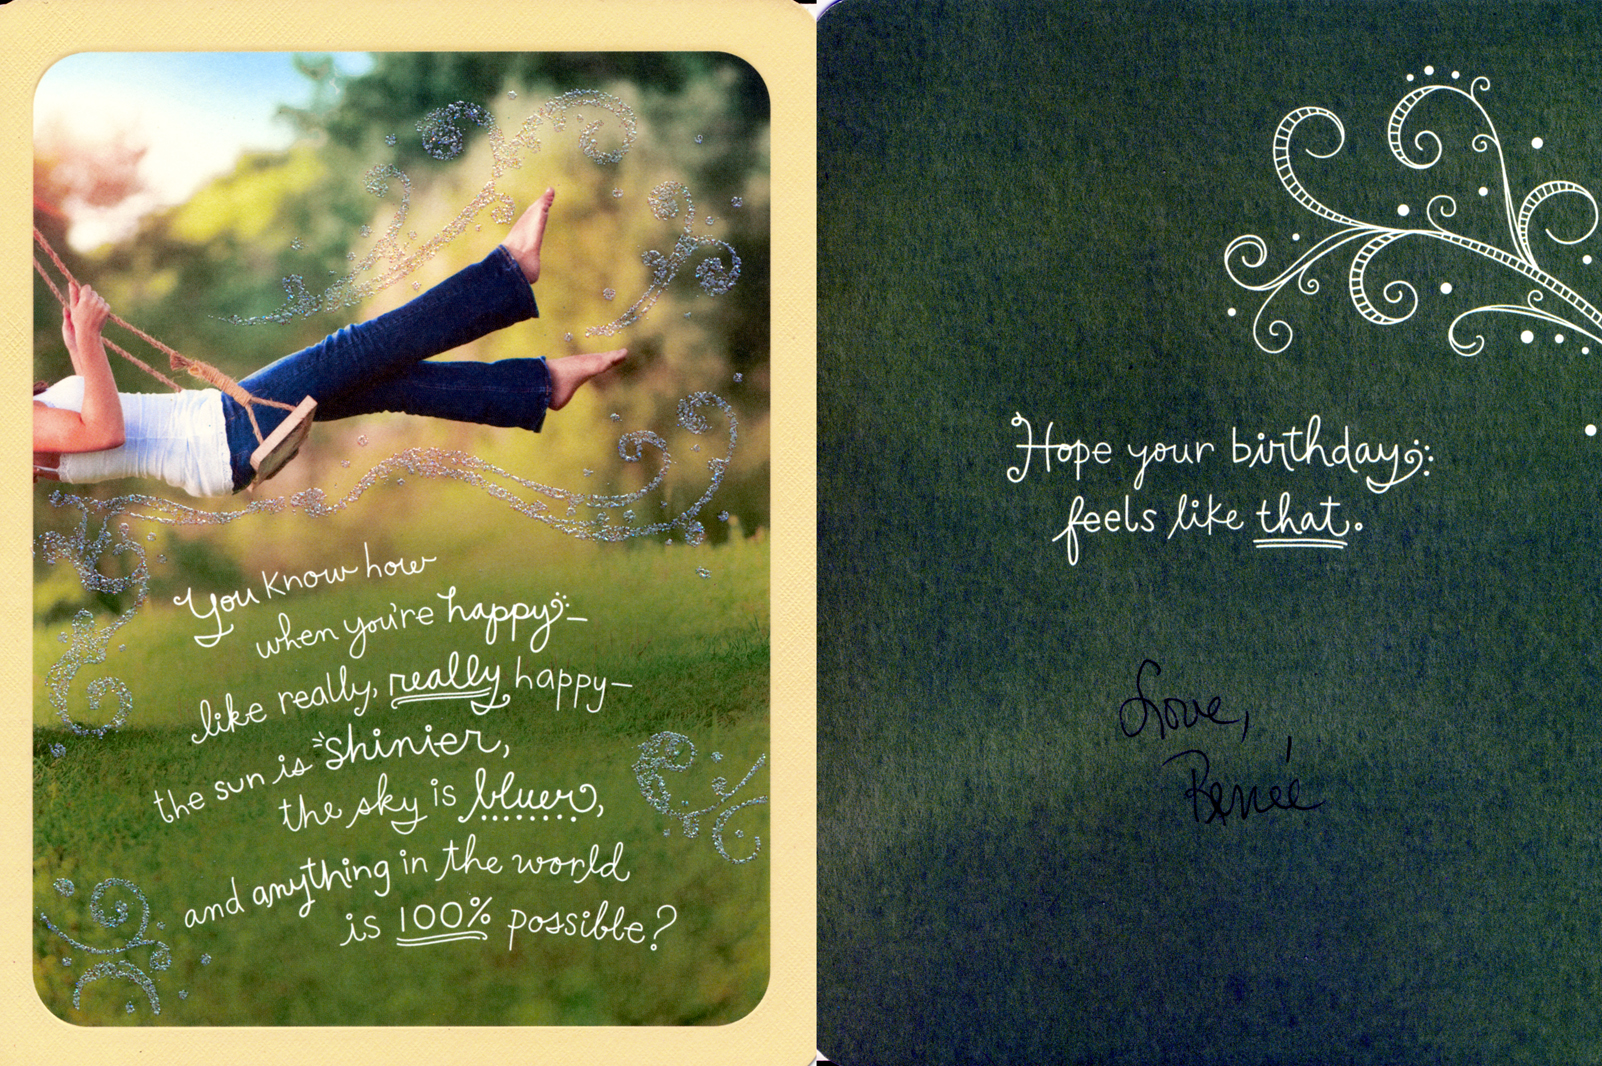 You know how
when you're happy—
like really, really happy—
the sun is shinier,
the sky is bluer,
and anything in the world
is 100% possible?
Hope your birthday
feels like that.
Love,
Renée